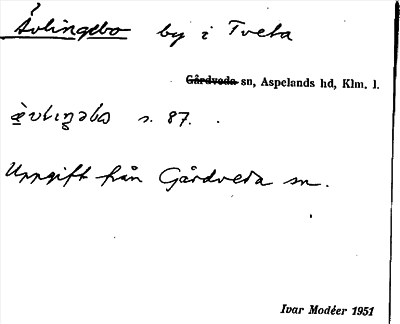 Åvlingebo by i Tveta
Gårdveda sn, Aspelands hd, Klm. l.
s. 87.
Uppgift från Gårdveda sn.
Ivar Modéer 1951